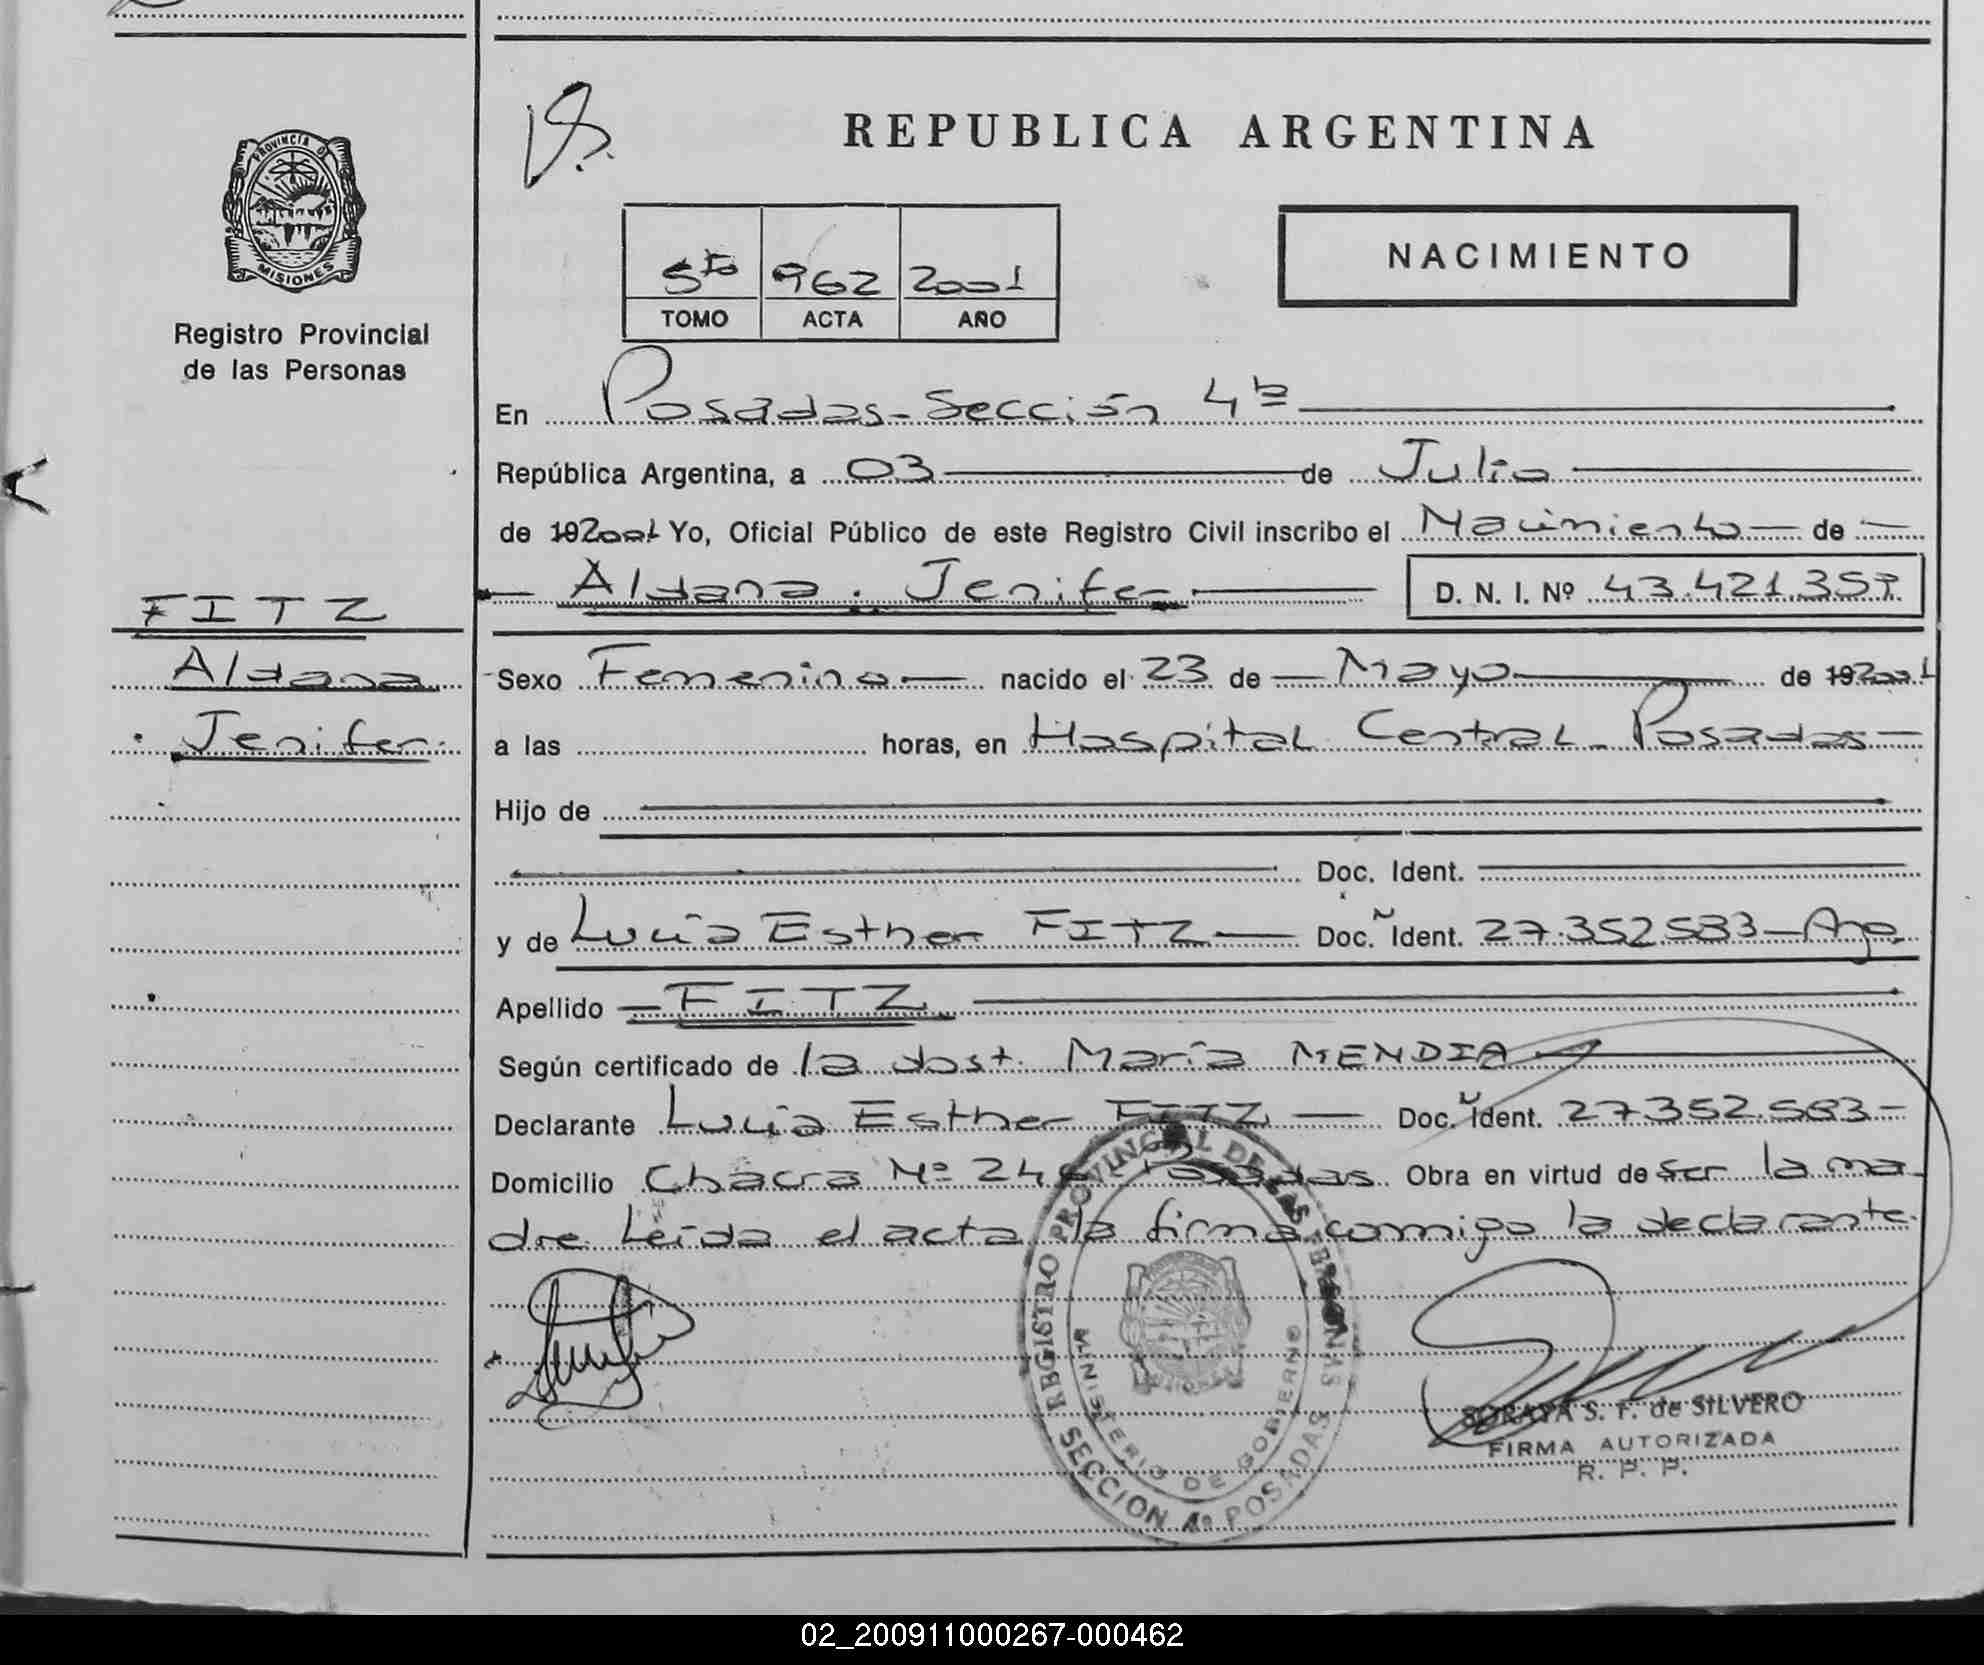 REPUBLICA ARGENTINA
PROVINCIA DE
MISIONES
Registro Provincial
de las Personas
5to 962 2001
TOMO ACTA AÑO
NACIMIENTO
En Posadas - Sección 4ta
República Argentina, a 03 de Julio
de 192001 Yo, Oficial Público de este Registro Civil inscribo el Nacimiento de
Aldana Jenifer D. N. I. Nº 43.421.359
FITZ
Aldana
Jenifer
Sexo Femenino nacido el 23 de Mayo de 192001
a las horas, en Hospital Central - Posadas
Hijo de
Doc. Ident.
y de Lucia Esther FITZ Doc. Ident. 27.352.583 - Arg.
Apellido FITZ
Según certificado de la obst. María MENDIA
Declarante Lucia Esther FITZ Doc. Ident. 27.352.583
Domicilio Chacra Nº 246 Posadas Obra en virtud de ser la ma
dre Leída el acta la firma comigo la declarante.
REGISTRO PROVINCIAL DE LAS PERSONAS
MINISTERIO DE GOBIERNO
SECCION 4ª POSADAS
SORAYA S. F. de SILVERO
FIRMA AUTORIZADA
R. P. P.
02_200911000267-000462